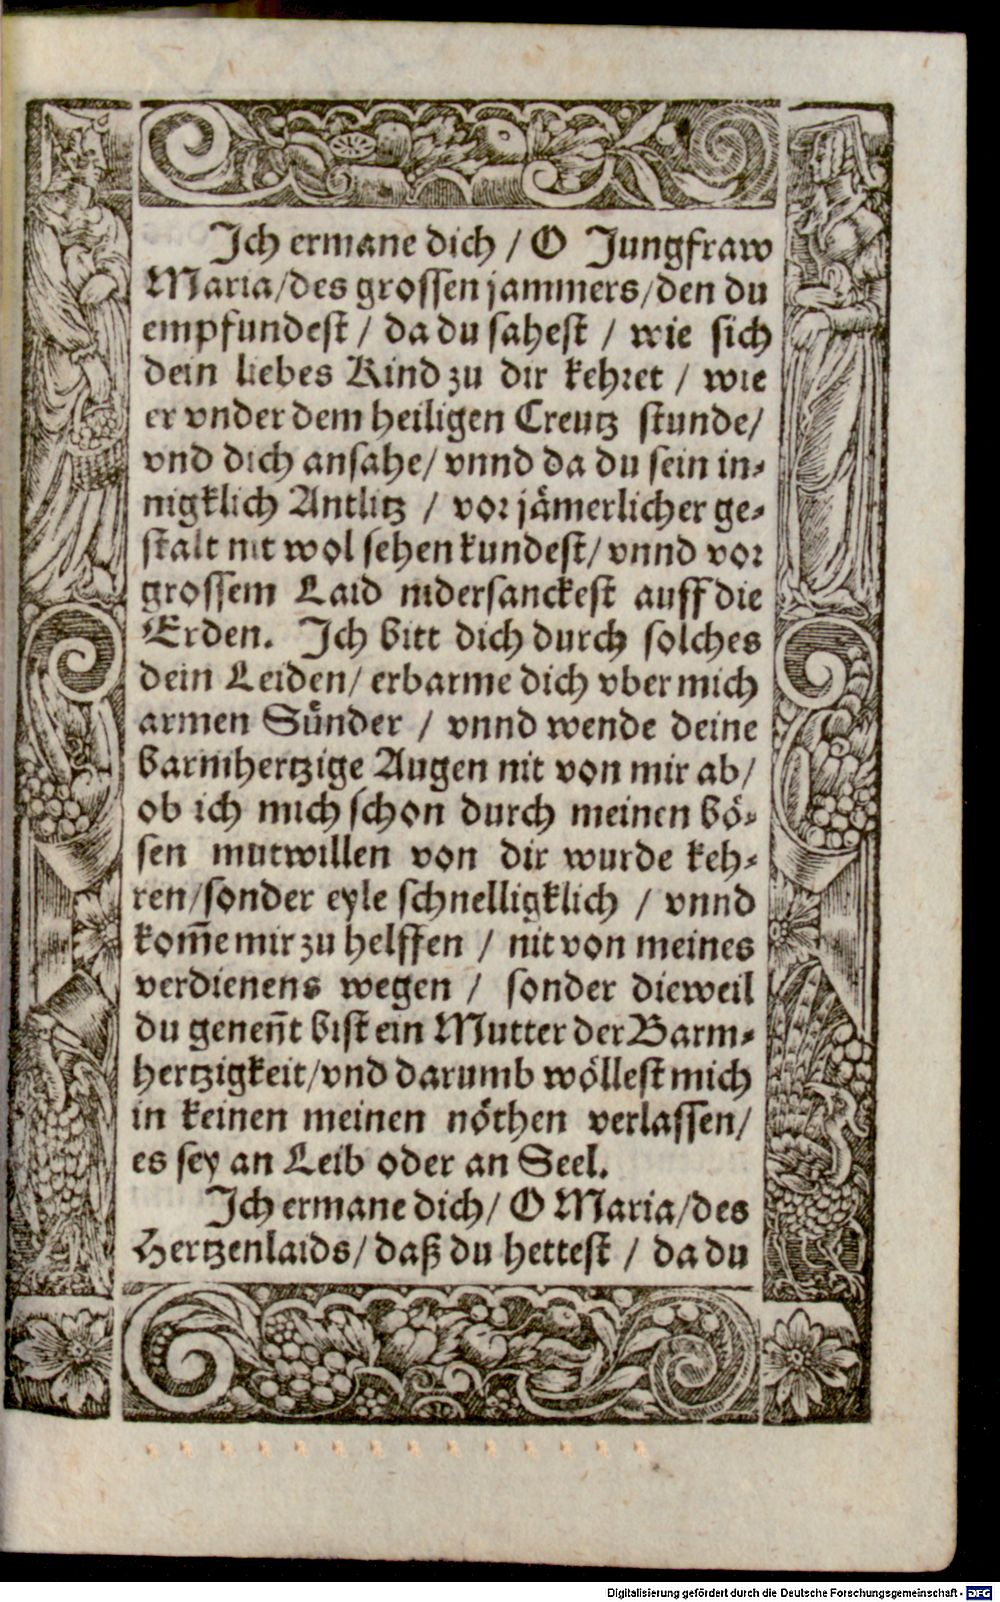 Ich ermane dich / O Jungfraw
Maria/des grossen jammers/den du
empfundest / da du sahest / wie sich
dein liebes Kind zu dir kehret / wie
er vnder dem heiligen Creutz stunde/
vnd dich ansahe/ vnnd da du sein in-
nigklich Antlitz / vor jämerlicher ge-
stalt nit wol sehen kundest/ vnnd vor
grossem Laid nidersanckest auff die
Erden. Ich bitt dich durch solches
dein Leiden/ erbarme dich vber mich
armen Sünder / vnnd wende deine
barmhertzige Augen nit von mir ab/
ob ich mich schon durch meinen bö-
sen mutwillen von dir wurde keh-
ren/sonder eyle schnelligklich / vnnd
kom̃e mir zu helffen / nit von meines
verdienens wegen / sonder dieweil
du genen̄t bist ein Mutter der Barm-
hertzigkeit/vnd darumb wöllest mich
in keinen meinen nöthen verlassen/
es sey an Leib oder an Seel.
Ich ermane dich/ O Maria/des
Hertzenlaids/daß du hettest / da du
Digitalisierung gefördert durch die Deutsche Forschungsgemeinschaft - DFG